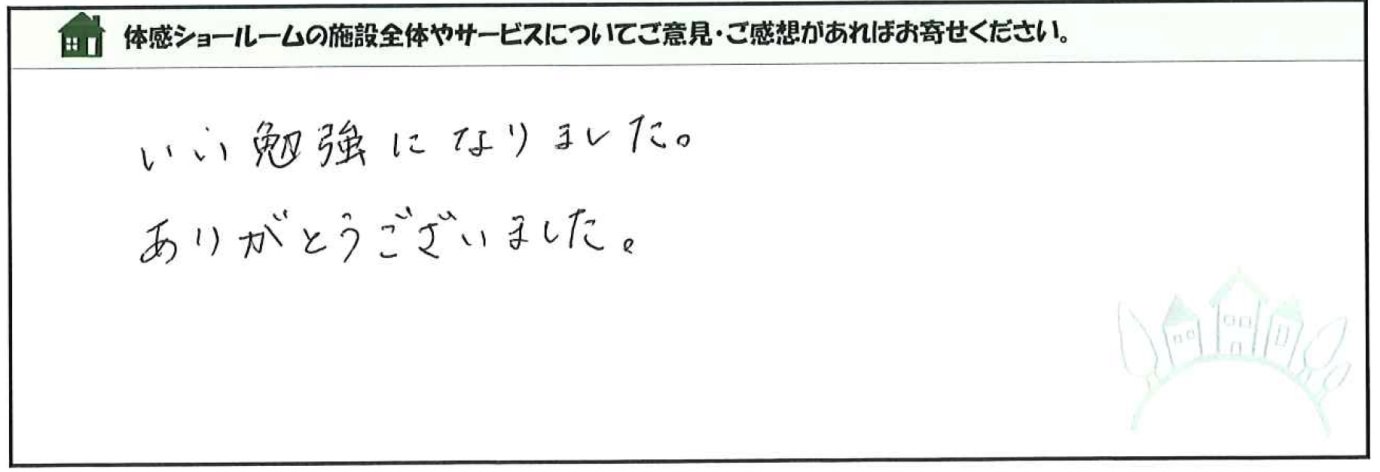 体感ショールームの施設全体やサービスについてご意見・ご感想があればお寄せください。
いい勉強になりました。
ありがとうございました。